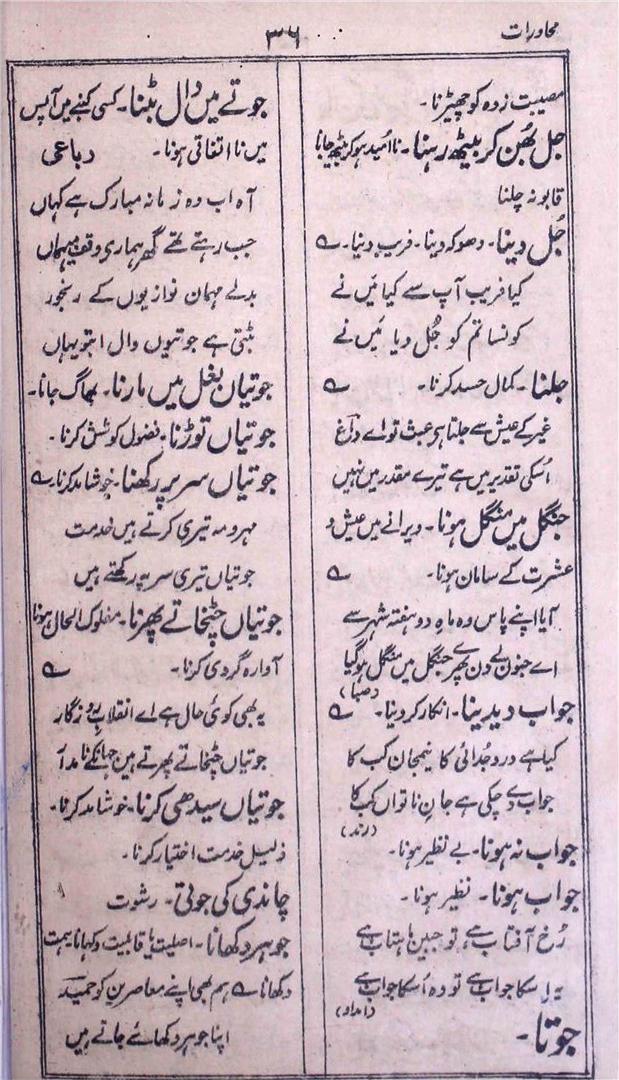 محاورات
۳۶
مصیبت زدہ کو چھیڑنا۔
جل بُھن کر بیٹھ رہنا۔ نا امید ہو کر بیٹھ جانا
قابو نہ چلنا
جُل دینا۔ دھوکہ دینا۔ فریب دینا۔ ؎
کیا فریب آپ سے کیا مَیں نے
کونسا تم کو جُل دیا مَیں نے
جلنا۔ کمال حسد کرنا۔ ؎
غیر کے عیش سے جلتا ہی عبث تو اے داغ
اُسکی تقدیر میں ہے تیرے مقدر میں نہیں
جنگل میں منگل ہونا۔ ویرانے میں عیش و
عشرت کے سامان ہونا۔ ؎
آیا اپنے پاس وہ ماہِ دو ہفتہ شہر سے
اے جنوں لے دن پھرے جنگل میں منگل ہو گیا
(صبا)
جواب دیدینا۔ انکار کر دینا۔ ؎
کیا ہے درد جُدائی کا نیمجان کب کا
جواب دے چکی ہے جانِ ناتواں کب کا
(رند)
جواب نہ ہونا۔ بے نظیر ہونا۔
جواب ہونا۔ نظیر ہونا۔
رُخ آفتاب ہے، تو جبیں ماہتاب ہے
یہ اِسکا جواب ہے تو وہ اُسکا جواب ہے
(امداد)
جوتا۔
جوتے میں دال بٹنا۔ کسی کنبے میں آپس
میں نا اتفاقی ہونا۔ رباعی
آہ اب وہ زمانہ مبارک ہے کہاں
جب رہتے تھے گھر ہماری وقف مہماں
بدلے مہمان نوازیوں کے رنجور
بٹتی ہے جوتیوں دال ابتو یہاں
جوتیاں بغل میں مارنا۔ بھاگ جانا۔
جوتیاں توڑنا۔ فضول کوشش کرنا۔
جوتیاں سر پر رکھنا۔ خوشامد کرنا۔ ؎
مہر و مہ تیری کرتے ہیں خدمت
جوتیاں تیری سر پہ رکھتے ہیں
جوتیاں چٹخاتے پھرنا۔ مفلوک الحال ہونا
آوارہ گردی کرنا۔ ؎
یہ بھی کوئی حال ہے اے انقلابِ روزگار
جوتیاں چٹخاتے پھرتے ہیں
جوتیاں سیدھی کرنا۔ خوشامد کرنا۔
ذلیل خدمت اختیار کرنا۔
چاندی کی جوتی۔ رشوت
جوہر دکھانا۔ اصلیت یا قابلیت دکھانا۔ ہمت
دکھانا ؎ ہم بھی اپنے معاصرین کو حمید
اپنا جوہر دکھائے جاتے ہیں